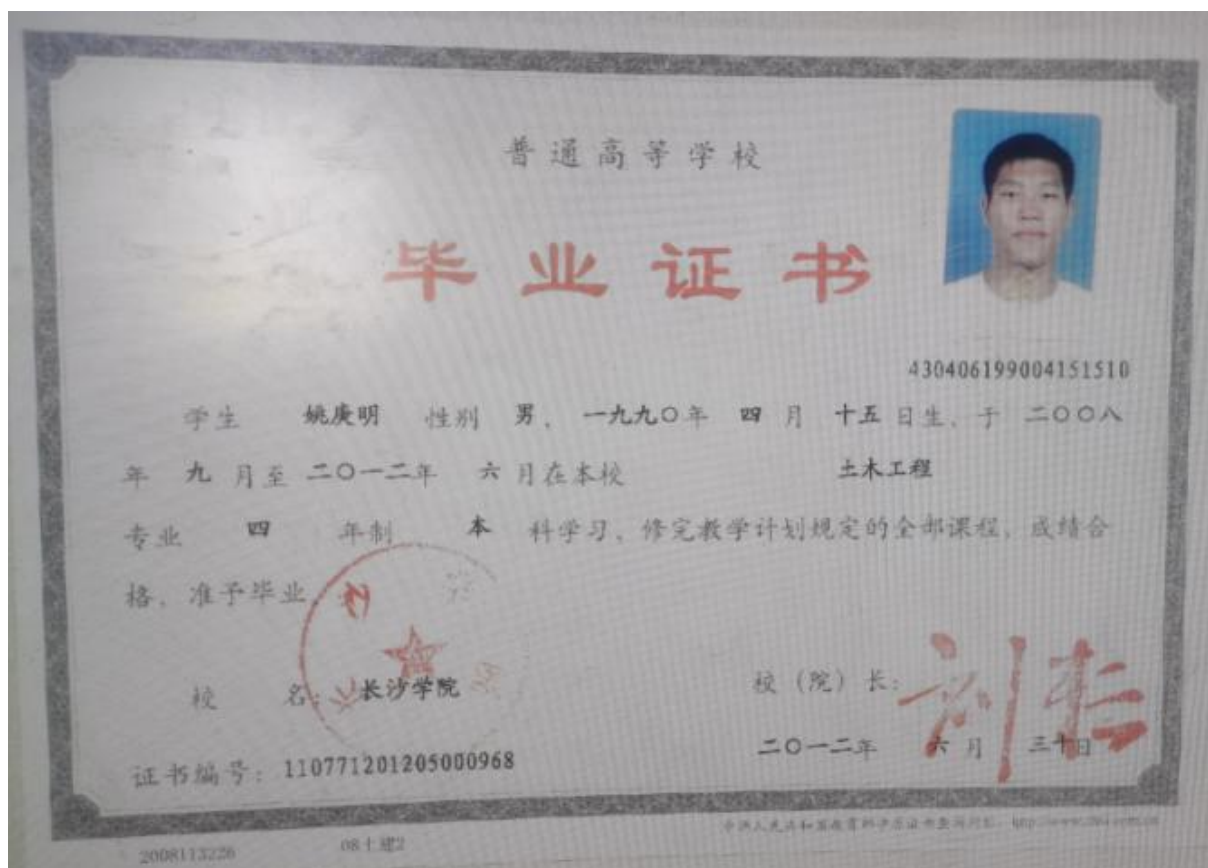 普通高等学校
毕业证书
430406199004151510
学生 姚庚明 性别 男，一九九〇年 四 月 十五 日生，于 二〇〇八
年 九 月至 二〇一二年 六 月在本校 土木工程
专业 四 年制 本 科学习，修完教学计划规定的全部课程，成绩合
格，准予毕业。
校 名：长沙学院
校（院）长：
二〇一二年 六 月 三十日
证书编号：110771201205000968
中华人民共和国教育部学历证书查询网址：
2008113226 08土建2